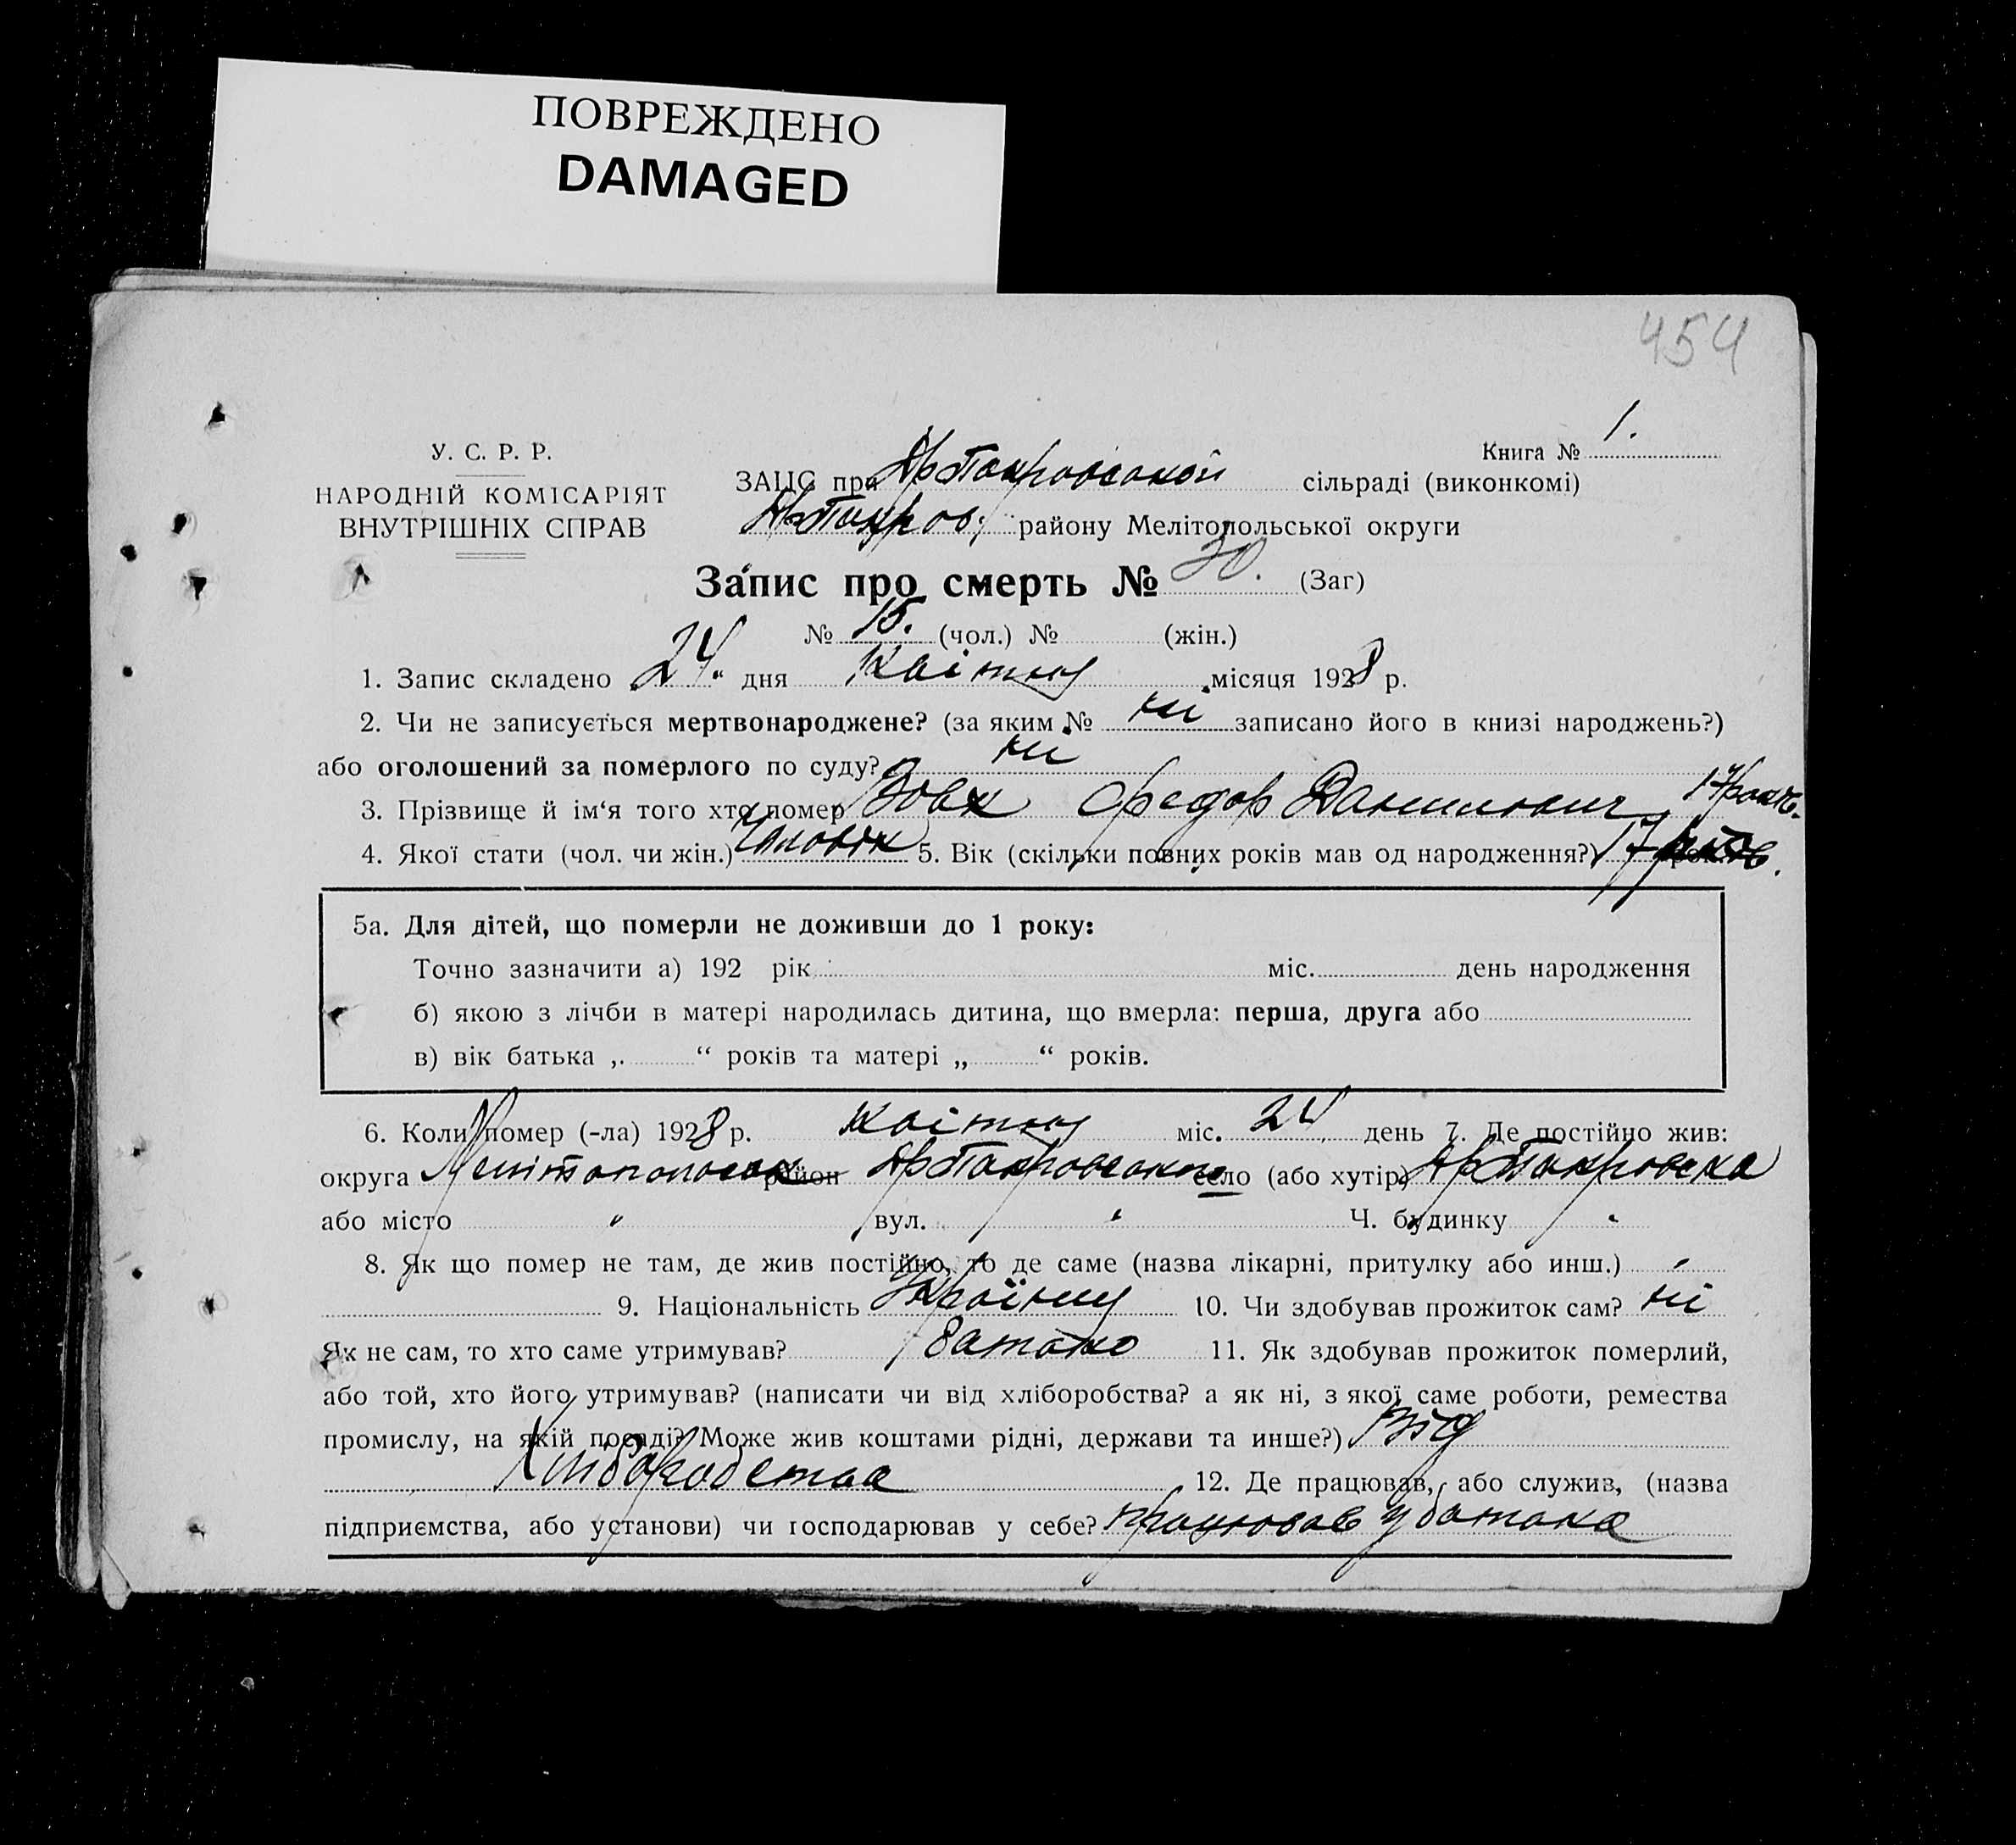 ПОВРЕЖДЕНО
DAMAGED
454
Книга № 1.
У. С. Р. Р.
НАРОДНІЙ КОМІСАРІЯТ
ВНУТРІШНІХ СПРАВ
ЗАЦС при сільраді (виконкомі)
району Мелітопольської округи
Запис про смерть № 30. (Заг)
№ 15. (чол.) № (жін.)
1. Запис складено „24“ дня Квітня місяця 1928 р.
2. Чи не записується мертвонароджене? (за яким № ні записано його в книзі народжень?)
або оголошений за померлого по суду? ні
3. Прізвище й ім‘я того хто помер Вовк Федор Данилович 17 років.
4. Якої стати (чол. чи жін.) Чоловік 5. Вік (скільки повних років мав од народження?) 17
5а. Для дітей, що померли не доживши до 1 року:
Точно зазначити а) 192 рік міс. день народження
б) якою з лічби в матері народилась дитина, що вмерла: перша, друга або
в) вік батька „ “ років та матері „ “ років.
6. Коли помер (-ла) 1928 р. Квітня міс. 24 день 7. Де постійно жив:
округа район село (або хутір)
або місто " вул. " Ч. будинку "
8. Як що помер не там, де жив постійно, то де саме (назва лікарні, притулку або инш.)
9. Національність 10. Чи здобував прожиток сам? ні
Як не сам, то хто саме утримував? батько 11. Як здобував прожиток померлий,
або той, хто його утримував? (написати чи від хліборобства? а як ні, з якої саме роботи, ремества
промислу, на якій посаді? Може жив коштами рідні, держави та инше?) Від
Хліборобства 12. Де працював, або служив, (назва
підприємства, або установи) чи господарював у себе? працював у батька